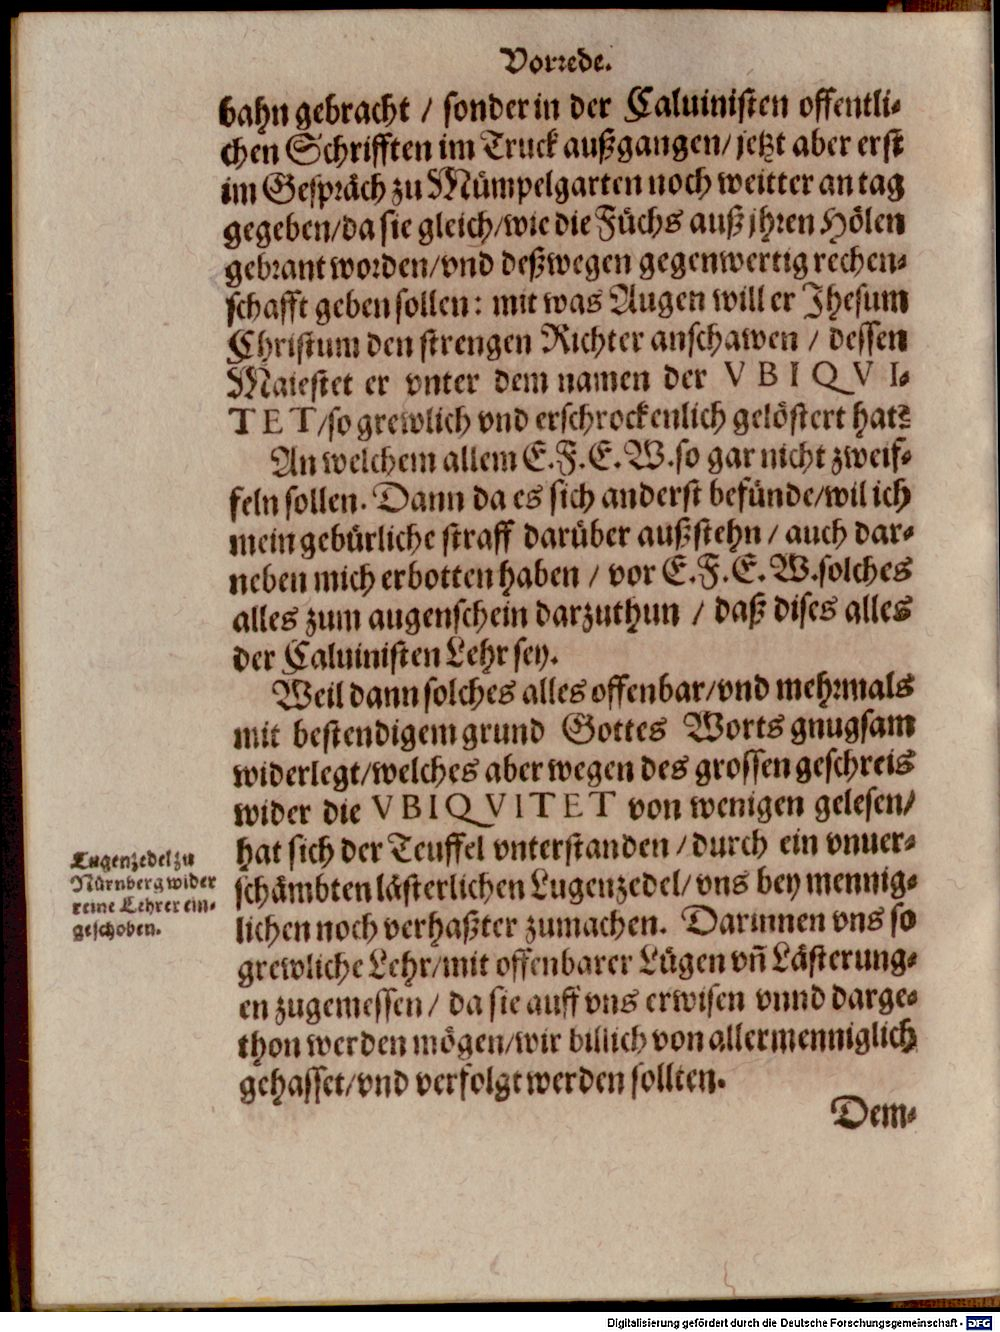 Vorrede.
bahn gebracht / sonder in der Caluinisten offentli-
chen Schrifften im Truck außgangen/ jetzt aber erst
im Gespräch zu Mümpelgarten noch weitter an tag
gegeben/da sie gleich/wie die Füchs auß jhren Hölen
gebrant worden/vnd deßwegen gegenwertig rechen-
schafft geben sollen: mit was Augen will er Jhesum
Christum den strengen Richter anschawen / dessen
Maiestet er vnter dem namen der VBIQVI-
TET/so grewlich vnd erschrockenlich gelöstert hat?
An welchem allem E.F.E.W.so gar nicht zweif-
feln sollen. Dann da es sich anderst befünde/wil ich
mein gebürliche straff darüber außstehn / auch dar-
neben mich erbotten haben / vor E.F.E.W.solches
alles zum augenschein darzuthun / daß dises alles
der Caluinisten Lehr sey.
Weil dann solches alles offenbar/vnd mehrmals
mit bestendigem grund Gottes Worts gnugsam
widerlegt/welches aber wegen des grossen geschreis
wider die VBIQVITET von wenigen gelesen/
hat sich der Teuffel vnterstanden / durch ein vnuer-
schämbten lästerlichen Lugenzedel/ vns bey mennig-
lichen noch verhaßter zumachen. Darinnen vns so
grewliche Lehr/mit offenbarer Lügen vñ Lästerung-
en zugemessen / da sie auff vns erwisen vnnd darge-
thon werden mögen/wir billich von allermenniglich
gehasset/vnd verfolgt werden sollten.
Lugenzedel zu
Nürnberg wider
reine Lehrer ein-
geschoben.
Dem-
Digitalisierung gefördert durch die Deutsche Forschungsgemeinschaft - DFG